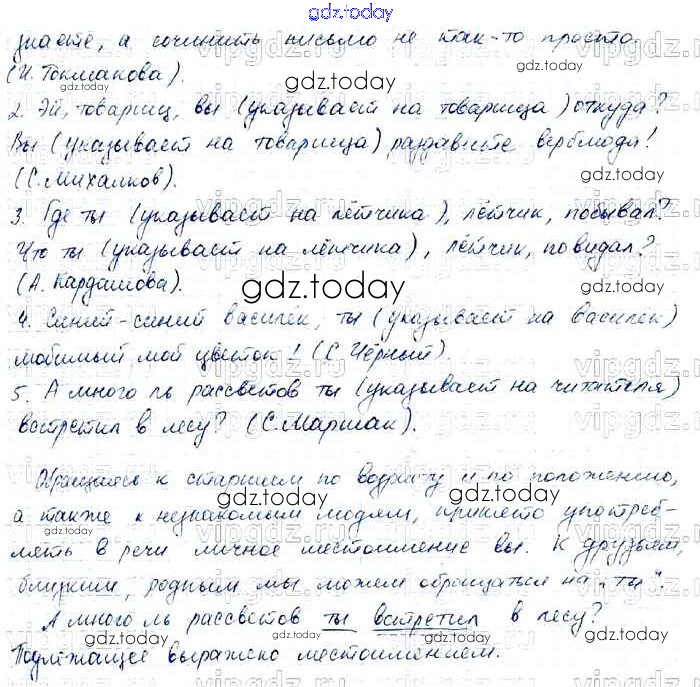 gdz.today
знаете, а сочинить письмо не так-то просто.
(И. Токмакова).
2. Эй, товарищ, вы (указывает на товарища) откуда?
Вы (указывает на товарища) раздавите верблюда!
(С. Михалков).
3. Где ты (указывает на лётчика), лётчик, побывал?
Что ты (указывает на лётчика), лётчик, повидал?
(А. Кардашова).
4. Синий-синий василёк, ты (указывает на василёк)
любимый мой цветок! (С. Чёрный).
5. А много ль рассветов ты (указывает на читателя)
встретил в лесу? (С. Маршак).
Обращаясь к старшим по возрасту и по положению,
а также к незнакомым людям, принято употреб-
лять в речи личное местоимение вы. К друзьям,
близким, родным мы можем обращаться на „ты".
А много ль рассветов ты встретил в лесу?
Подлежащее выражено местоимением.